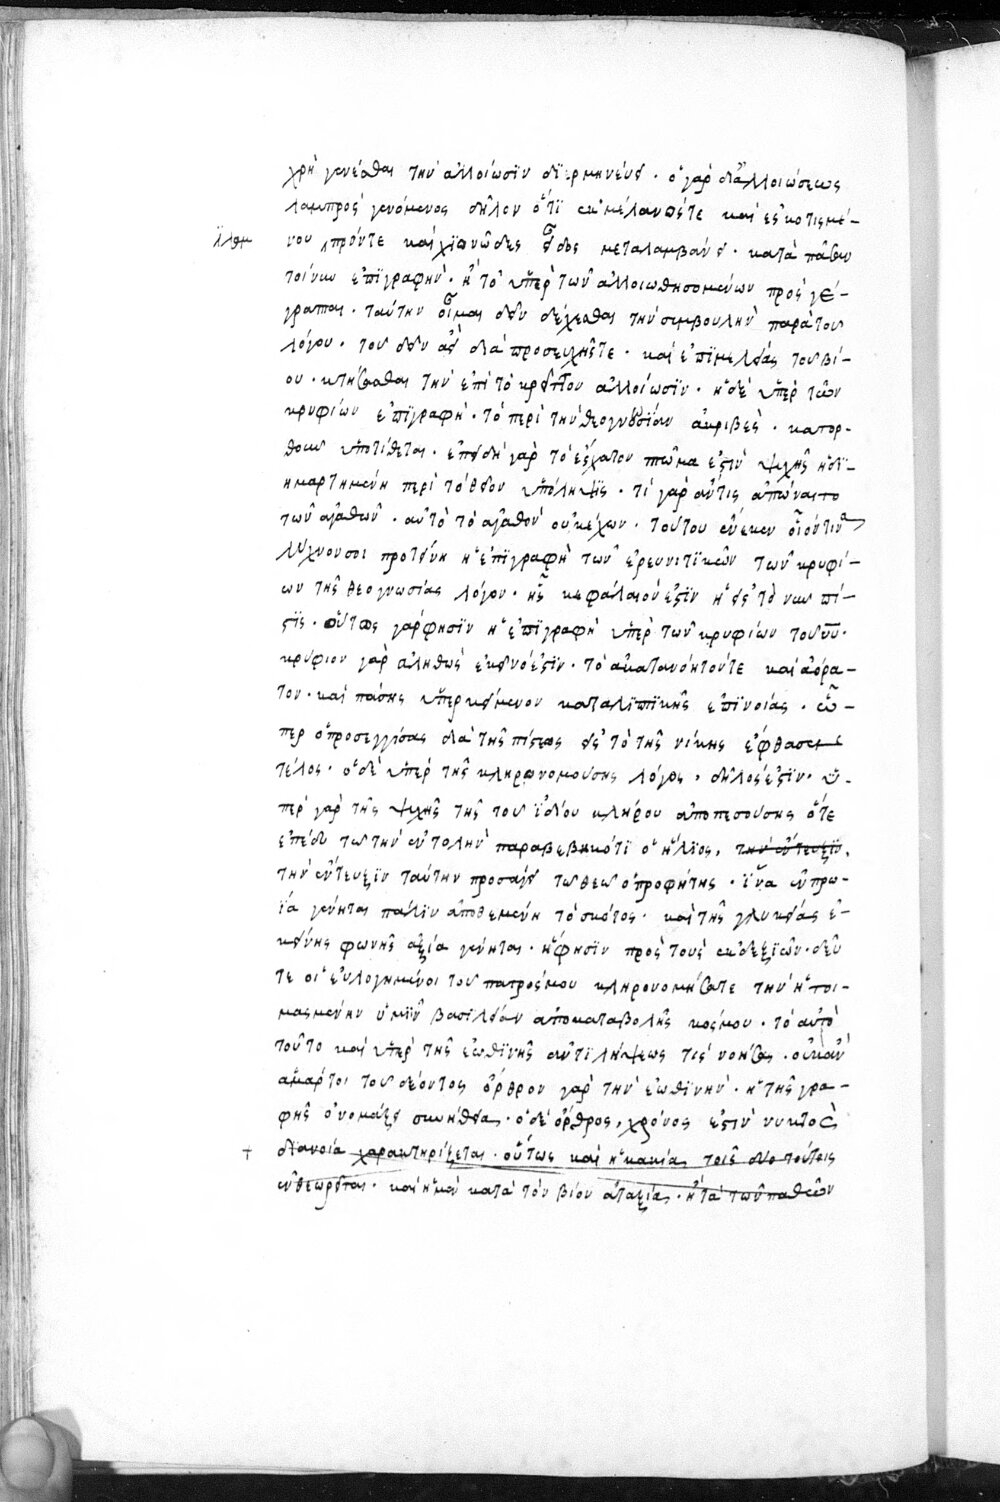 χρὴ γενέσθαι τὴν ἀλλοίωσϊν διερμηνεύει · ὁ γὰρ δι' ἀλλοιώσεως
λαμπρὸς γενόμενος δῆλον ὅτϊ ἐκ μέλανός τε καὶ ἐσκοτισμέ-
νου λαμπρόν τε καὶ χϊονῶδες εἶδος μεταλαμβάνει · κατὰ
τοίνυν ἐπϊγραφὴν · ἢ τὸ ὑπὲρ τῶν ἀλλοιωθησομένων προσγέ-
γραπται · ταύτην οἶμαι δεῖν δέχεσθαι τὴν συμβουλὴν παρὰ τοῦ
λόγου · τοῦ δεῖν ἀεὶ διὰ προσευχῆς τε · καὶ ἐπϊμελείας τοῦ βί-
ου · κτήσασθαι τὴν ἐπὶ τὸ κρεῖττον ἀλλοίωσϊν · ἡ δὲ ὑπὲρ τῶν
κρυφίων ἐπϊγραφὴ · τὸ περὶ τὴν θεογνωσίαν ἀκριβὲς · κατορ-
θοῦν ὑποτίθεται · ἐπειδὴ γὰρ τὸ ἔσχατον πτῶμα ἐστὶν ψυχῆς ἡ δϊ-
ημαρτημένη περὶ τὸ θεῖον ὑπόληψϊς · τί γὰρ ἄν τις ἀπώναιτο
τῶν ἀγαθῶν · αὐτὸ τὸ ἀγαθὸν οὐκ ἔχων · τούτου ἕνεκεν
λύχνου σοι προτείνει ἡ ἐπϊγραφὴ τῶν ἐρευνιτϊκῶν τῶν κρυφί-
ων τῆς θεογνωσίας λόγον · ἧς κεφάλαιον ἐστϊν ἡ εἰς τὸ πί-
στϊς · οὕτως γάρ φησϊν ἡ ἐπϊγραφὴ ὑπὲρ τῶν κρυφίων τοῦ υυ ·
κρύφιον γὰρ ἀληθῶς ἐκεῖνό ἐστϊν · τὸ ἀκατανόητόν τε καὶ ἀόρα-
τον · καὶ πάσης ὑπερκείμενον καταλϊπτϊκῆς ἐπϊνοίας · ὧ-
περ ὁ προσεγγίσας διὰ τῆς πίστεως εἰς τὸ τῆς νίκης ἔφθασε
τέλος · ὁ δὲ ὑπὲρ τῆς κληρονομούσης λόγος, δῆλός ἐστϊν · ὑ-
πὲρ γὰρ τῆς ψυχῆς τῆς τοῦ ἰδίου κλήρου ἀποπεσούσης ὅτε
ἐπέδυ τῶ τὴν ἐντολὴν παραβεβηκότϊ ὁ ἥλϊος, τὴν ἔντευξϊν,
τὴν ἔντευξϊν ταύτην προσάγει τῶ θεῶ ὁ προφήτης · ἵνα ἐν πρω-
ΐα γένηται πάλϊν ἀποθεμένη τὸ σκότος · καὶ τῆς γλυκείας ἐ-
κείνης φωνῆς ἀξία γένηται · ἥ φησϊν πρὸς τοὺς ἐκ δεξϊῶν · δεῦ
τε οἱ εὐλογημένοι τοῦ πατρός μου κληρονομήσατε τὴν ἡτοι-
μασμένην ὑμῖν βασϊλείαν ἀπὸ καταβολῆς κόσμου · τὸ αὐτὸ
τοῦτο καὶ ὑπὲρ τῆς ἑωθϊνῆς ἀντϊλήψεως τὶς νοήσας · οὐκ ἂν
ἁμάρτοι τοῦ δέοντος ὄρθρον γὰρ τὴν ἑωθϊνὴν · ἡ τῆς γρα-
φῆς ὀνομάζει συνήθεια · ὁ δὲ ὄρθρος, χρόνος ἐστὶν νυκτὸς
† διανοία χαρακτηρίζεται · οὕτως καὶ ἡ κακία τοῖς δυσὶ τούτοις
ἐνθεωρεῖται · καὶ ἡ μὲν κατὰ τὸν βίον ἀταξία · ἥ τε τῶν παθῶν